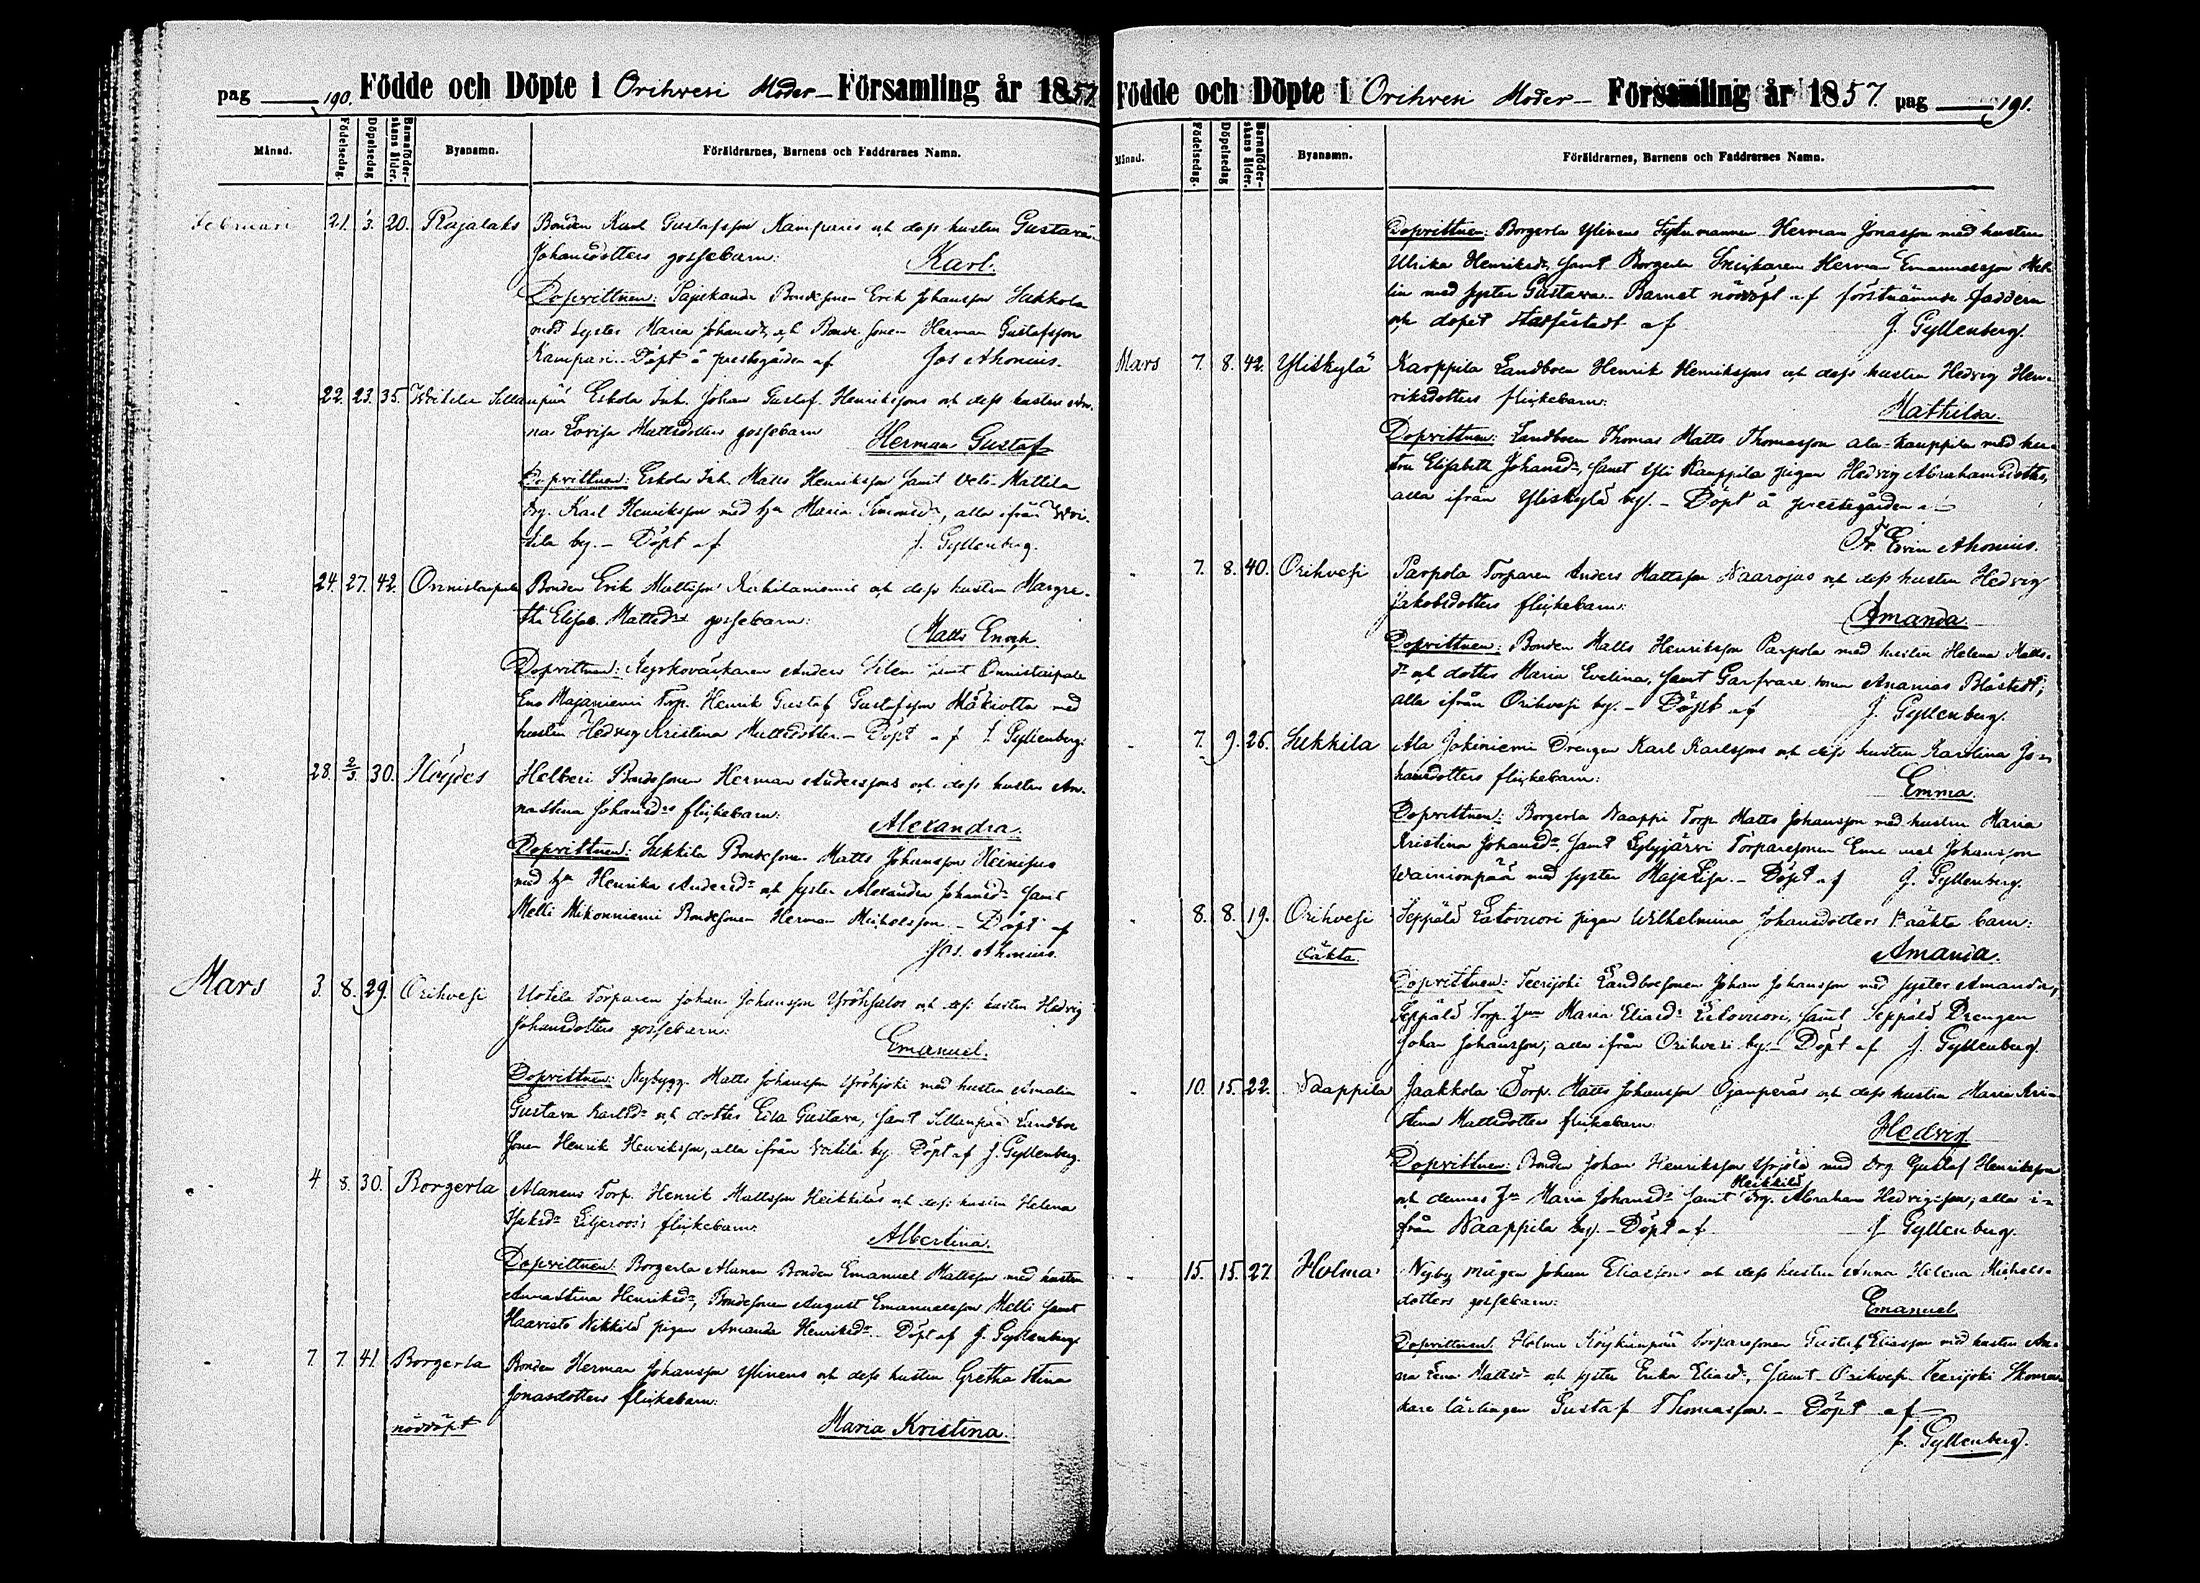 pag 190. Födde och Döpte i Orihvesi Moder-Församling år 1857
Månad. Födelsedag. Döpelsedag Barnaföderskans ålder. Byanamn. Föräldrarnes, Barnens och Faddrarnes Namn.
Februari 21. 1/3. 20. Rajalaks Bonden Karl Gustafsson Kamparis och dess hustru Gustava
Johansdotters gossebarn: Karl.
Dopvittnen: Bondesonen Erik Johansson Sukkola
med syster Maria Johansdr, och Bonde sonen Herman Gustafsson
Kampari. Döpt å prestegården af Jos Ahonius.
22. 23. 35. Wihtila Sillanpää Eskola Inh. Johan Gustaf Henrikssons och dess hustru An-
na Lovisa Mattsdotters gossebarn Herman Gustaf
Dopvittnen: Eskola Inh. Matts Henriksson samt Veli-Mattila
drg. Karl Henriksson med hu Maria Simonsdr, alla ifrån
by. - Döpt af J. Gyllenberg.
24. 27. 42. Onnistaipale Bonden Erik Mattsson och dess hustru Margre-
tha Elisab. Mattsdrs gossebarn: Matts Enoch
Dopvittnen: Anders Silen samt Onnistaipale
Eno Majaniemi Torp. Henrik Gustaf Gustafsson med
hustru Hedvig Kristina Mattsdotter. - Döpt af J. Gyllenberg.
28. 2/3. 30. Höydes Helberi Bondesonen Herman Anderssons och dess hustru An-
nastina Johansdrs flickebarn: Alexandra.
Dopvittnen: Sukkila Bondesonen Matts Johansson Heinijus
med hu Henrika Andersdr och syster Alexandra Johansdr samt
Melli Mikonniemi Bondesonen Herman Michelsson. - Döpt af
Jos. Ahonius.
Mars 3. 8. 29. Orihvesi Uotila Torparen Johan Johansson och dess hustru Hedvig
Johansdotters gossebarn: Emanuel.
Dopvittnen: Nybygg. Matts Johansson Yröhjoki med hustru Amalia
Gustava Karlsdr och dotter Eila Gustava, samt Sillanpää Landbo
sonen Henrik Henriksson, alla ifrån by. Döpt af J. Gyllenberg.
4. 8. 30. Borgerla Alanens Torp. Henrik Mattsson Heikkiläs och dess hustru Helena
Isaksdr Liljeroos's flickebarn: Albertina.
Dopvittnen: Borgerla Alanen Bonden Emanuel Mattsson med hustru
Annastina Henriksdr, Bondesonen August Emanuelsson Melli samt
Haavisto Nikkilä pigan Amanda Henriksdr. Döpt af J. Gyllenberg
7. 7. 41. Borgerla Bonden Herman Johansson Ylinens och dess hustru Gretha Stina
Jonasdotters flickebarn:
nöddöpt Maria Kristina.
Födde och Döpte i Orihvesi Moder-Församling år 1857. pag 191.
Månad. Födelsedag. Döpelsedag Barnaföderskans ålder. Byanamn. Föräldrarnes, Barnens och Faddrarnes Namn.
Dopvittnen: Borgerla Ylinens Sytninmannen Herman Jonasson med hustru
Ulrika Henriksdr, samt Borgerla Snickaren Herman Emanuelsson Hel-
lin med syster Gustava. Barnet nöddöpt af förstnämnde faddern
och dopet stadfästadt af J. Gyllenberg.
Mars 7. 8. 42. Yliskylä Karppila Landboen Henrik Henrikssons och dess hustru Hedvig Hen-
riksdotters flickebarn: Mathilda.
Dopvittnen: Landboen Thomas Matts Thomasson ala-Kauppila med hu-
stru Elisabeth Johansdr, samt Yli Kauppila pigan Hedvig Abrahamsdotter,
alla ifrån Yliskylä by. - Döpt å prestegården af
Fr. Edvin Ahonius.
7. 8. 40. Orihvesi Parpola Torparen Anders Mattsson Naarojas och dess hustru Hedvig
Jakobsdotters flickebarn: Amanda.
Dopvittnen: Bonden Matts Henriksson Parpola med hustru Helena Matts-
dr och dotter Maria Evelina, samt Garfvare sonen Ananias Blåstedt,
alla ifrån Orihvesi by. - Döpt af J. Gyllenberg.
7. 9. 26. Sukkila Ala Jokiniemi Drengen Karl Karlssons och dess hustru Karolina Jo-
hansdotters flickebarn: Emma.
Dopvittnen: Borgerla Naappi Torp Matts Johansson med hustru Maria
Kristina Johansdr, samt Syljärvi Torparesonen Emanuel Johansson
Wainionpää med syster MajaLisa. - Döpt af J. Gyllenberg.
8. 8. 19. Orihvesi Seppälä Latovuori pigan Wilhelmina Johansdotters oäkta barn:
oäkta. Amanda.
Dopvittnen: Teerijoki Landbosonen Johan Johansson med syster Amanda,
Seppälä Torp. Maria Eliasdr Latovuori, samt Seppälä Drengen
Johan Johansson, alla ifrån Orihvesi by. Döpt af J. Gyllenberg.
10. 15. 22. Naappila Jaakkola Torp. Matts Johansson Ojanperäs och dess hustru Maria Kri-
stina Mattsdotters flickebarn: Hedvig
Dopvittnen: Bonden Johan Henriksson Yrjölä med drg Gustaf Henriksson
och dennes hu Maria Johansdr samt Heikkilä drg. Abraham Hedvigsson, alla i-
från Naappila by. - Döpt af J Gyllenberg.
15. 15. 27. Holma Nybyggmågen Johan Eliassons och dess hustru Anna Helena Michels-
dotters gossebarn: Emanuel
Dopvittnen: Holma Torparesonen Gustaf Eliasson med hustru An-
na Lena Mattsdr och syster Erika Eliasdr, samt Orihvesi Teerijoki Skoma-
kare lärlingen Gustaf Thomasson. - Döpt af
J. Gyllenberg.